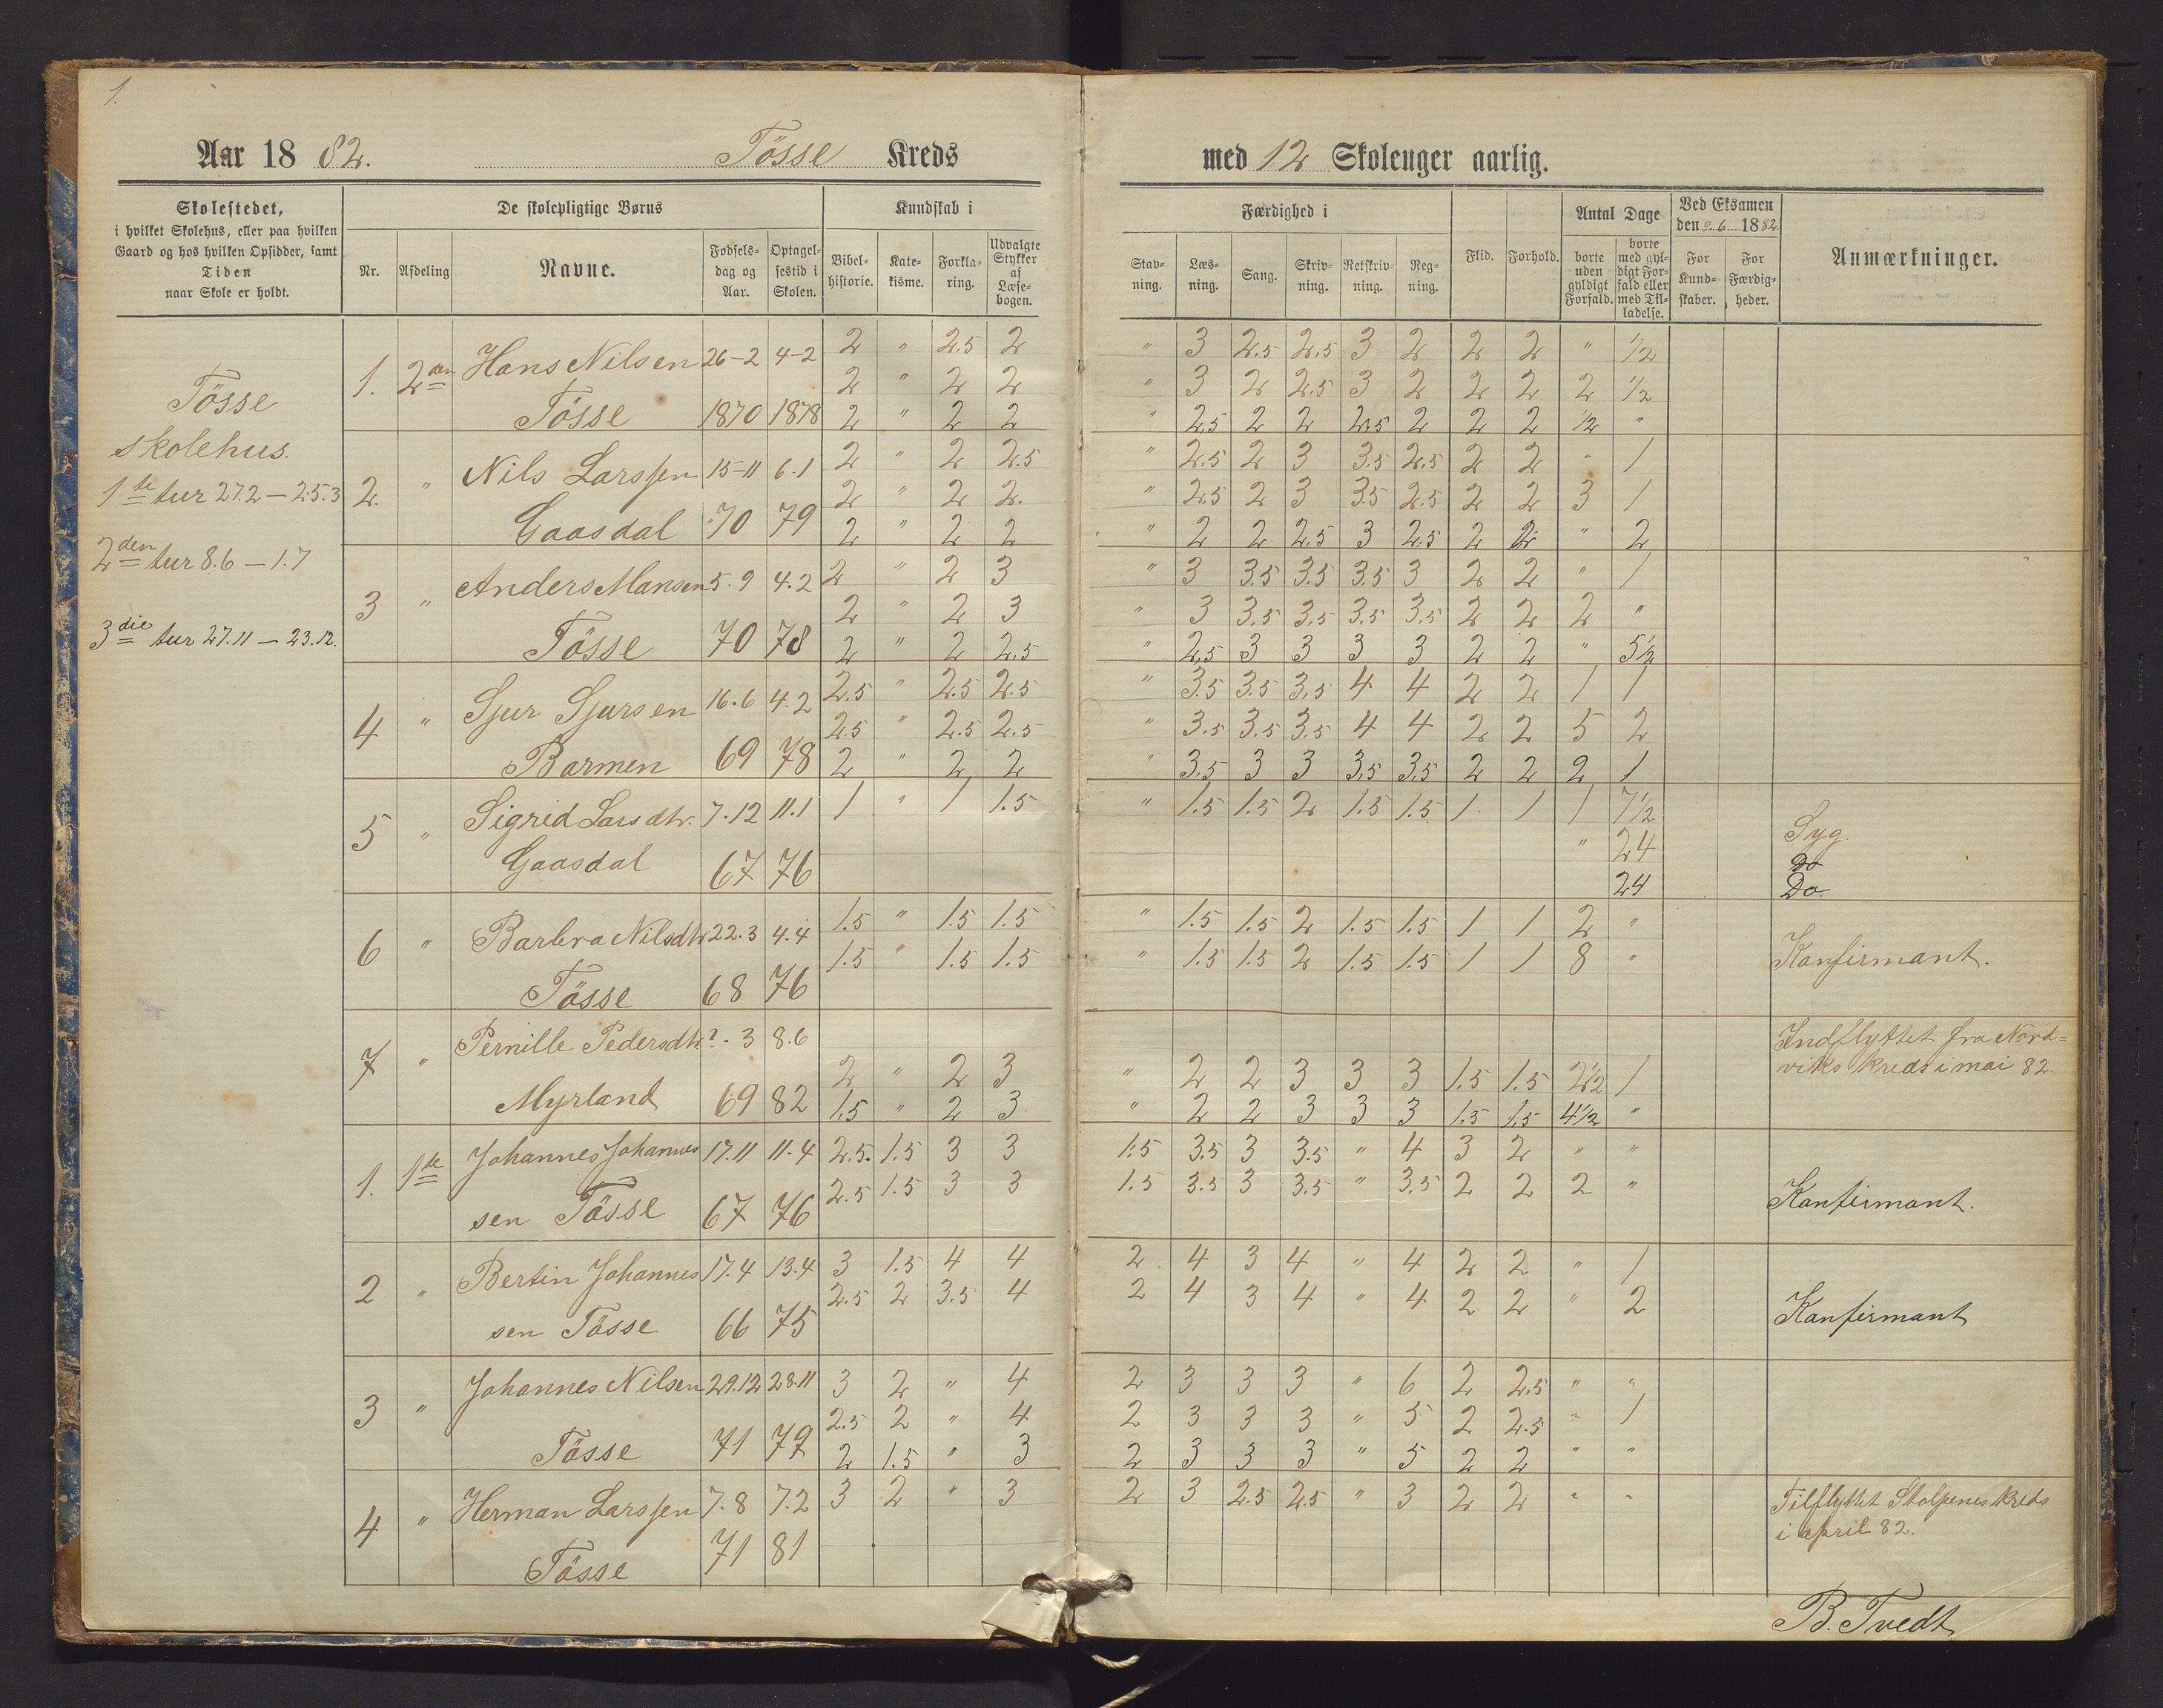 1.
Aar 1882. Tösse Kreds med 12 Skoleuger aarlig.
Skolestedet,
i hvilket Skolehus, eller paa hvilken
Gaard og hos hvilken Opsidder, samt
Tiden
naar Skole er holdt.
De skolepligtige Børns
Nr. Afdeling Navne. Fødsels-dag og Aar. Optagel-sestid i Skolen.
Kundskab i
Bibel-historie. Kate-kisme. Forkla-ring. Udvalgte Stykker af Læse-bogen.
Færdighed i
Stav-ning. Læs-ning. Sang. Skriv-ning. Retskriv-ning. Reg-ning.
Flid. Forhold.
Antal Dage
borte uden gyldigt Forfald. borte med gyl-digt For-fald eller med Til-ladelse.
Ved Eksamen
den 9.6 1882.
For Kund-skaber. For Færdig-heder.
Anmærkninger.
Tösse
skolehus.
1ste tur 27.2 – 25.3
2den tur 8.6 – 1.7
3die tur 27.11 – 23.12.
1. 2den Hans Nilsen 26-2 4-2 2 " 2.5 2 " 3 2.5 2.5 3 2 2 2 " 1/2
2 " 2 2 " 3 2 2.5 3 2 2 2 2 1/2
Tösse 1870 1878 2 " 2 2 " 2.5 2 2 2.5 2 2 2 1/2 "
2. " Nils Larssen 15-11 6.1 2 " 2 2.5 " 2.5 2 3 3.5 2.5 2 2 " 1
2 " 2 2. " 2.5 2 3 3.5 2.5 2 2 3 1
Gaasdal 70 79 2 " 2 2 " 2 2 2.5 3 2.5 2 2 " 2
3 " Anders Mansen 5.9 4.2 2 " 2 3 " 3 3.5 3.5 3.5 3 2 2 " 1
2 " 2 3 " 3 3.5 3.5 3.5 3.5 2 2 2 "
Tösse 70 78 2 " 2 2.5 " 2.5 3 3 3 3 2 2 " 5 1/2
4 " Sjur Sjursen 16.6 4.2 2.5 " 2.5 2.5 " 3.5 3.5 3.5 4 4 2 2 1 1
2.5 " 2.5 2.5 " 3.5 3.5 3.5 4 4 2 2 5 2
Barmen 69 78 2 " 2 2 " 3.5 3 3 3.5 3.5 2 2 2 1
5 " Sigrid Larsdtr. 7.12 11.1 1 " 1 1.5 " 1.5 1.5 2 1.5 1.5 1 1 1 7 1/2 Syg.
" 24 Do
Gaasdal 67 76 24 Do.
6 " Barbra Nilsdtr 22.3 4.4 1.5 " 1.5 1.5 " 1.5 1.5 2 1.5 1.5 1 1 2 "
1.5 " 1.5 1.5 " 1.5 1.5 2 1.5 1.5 1 1 8 " Konfirmant.
Tösse 68 76
7 " Pernille Pedersdtr ?-3 8.6 Indflyttet fra Nord=
2 " 2 3 " 2 2 3 3 3 1.5 1.5 2 1/2 1 viks kreds i mai 82.
Myrland 69 82 1.5 " 2 3 " 2 2 3 3 3 1.5 1.5 4 1/2 "
1. 1ste Johannes Johannes 17.11 11.4 2.5. 1.5 3 3 1.5 3.5 3 3.5 " 4 3 2 " "
2.5 1.5 3 3 1.5 3.5 3 3.5 " 3.5 2 2 2 " Konfirmant.
sen Tösse 67 76
2 " Bertin Johannes 17.4 13.4 3 1.5 4 4 2 4 3 4 " 4 2 2 " 1
2.5 2 3.5 4 2 4 3 4 " 4 2 2 " 2 Konfirmant
sen Tösse 66 75
3 " Johannes Nilsen 29.12 28.11 3 2 " 4 2 3 3 3 " 6 2 2.5 " "
2.5 2 " 4 2 3 3 3 " 5 2 2.5 " 1
Tösse 71 79 2 1.5 " 3 2 3 3 3 " 5 2 2 " "
4 " Herman Larssen 7.8 7.2 3 2 " 3 2 3 2.5 2.5 " 3 2 2 " " Tilflyttet Stolpenes kreds
i april 82.
Tösse 71 81
B. Tvedt